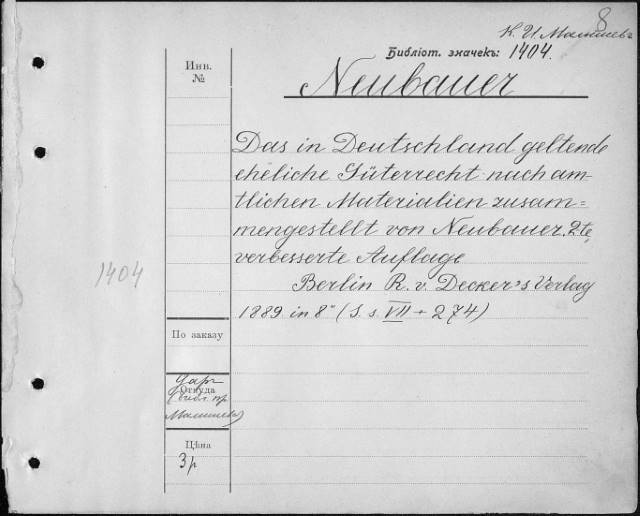 8
К. И. Малышевъ
Библіот. значекъ: 1404.
Инв.
№
Neubauer
Das in Deutschland geltende
eheliche Güterrecht nach am-
tlichen Materialien zusam=
mengestellt von Neubauer. 2te,
verbesserte Auflage
Berlin R. v. Decker's Verlag
1889 in 8° (S. s. VII + 274)
1404
По заказу
Даръ
Откуда
(библ. пр.
Малышева)
Цѣна
3 р